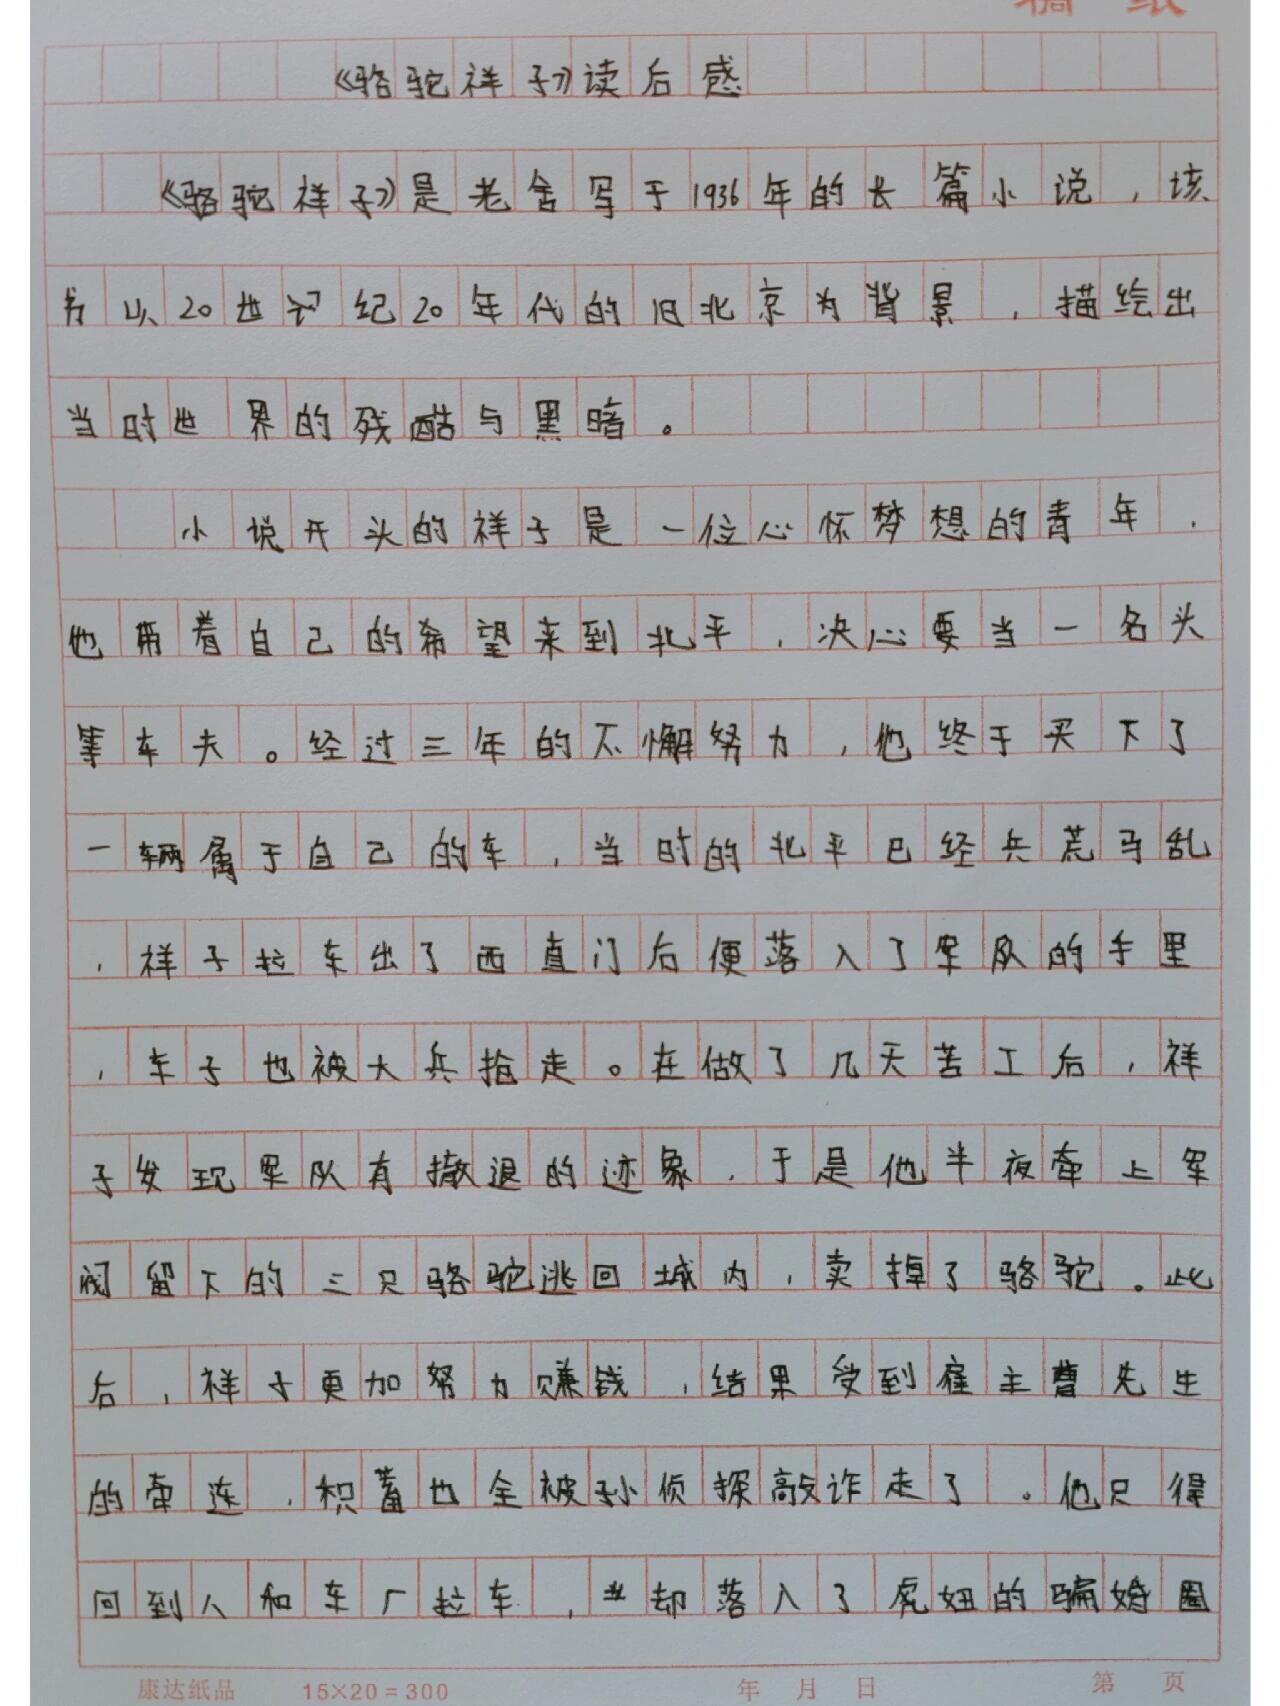 稿 纸
《骆驼祥子》读后感
《骆驼祥子》是老舍写于1936年的长篇小说，该
书以20世纪20年代的旧北京为背景，描绘出
当时世界的残酷与黑暗。
小说开头的祥子是一位心怀梦想的青年，
他带着自己的希望来到北平，决心要当一名头
等车夫。经过三年的不懈努力，他终于买下了
一辆属于自己的车，当时的北平已经兵荒马乱
，祥子拉车出了西直门后便落入了军队的手里
，车子也被大兵抢走。在做了几天苦工后，祥
子发现军队有撤退的迹象，于是他半夜牵上军
阀留下的三只骆驼逃回城内，卖掉了骆驼。此
后，祥子更加努力赚钱，结果受到雇主曹先生
的牵连，积蓄也全被孙侦探敲诈走了。他只得
回到人和车厂拉车，却落入了虎妞的骗婚圈
康达纸品 15×20=300 年 月 日 第 页